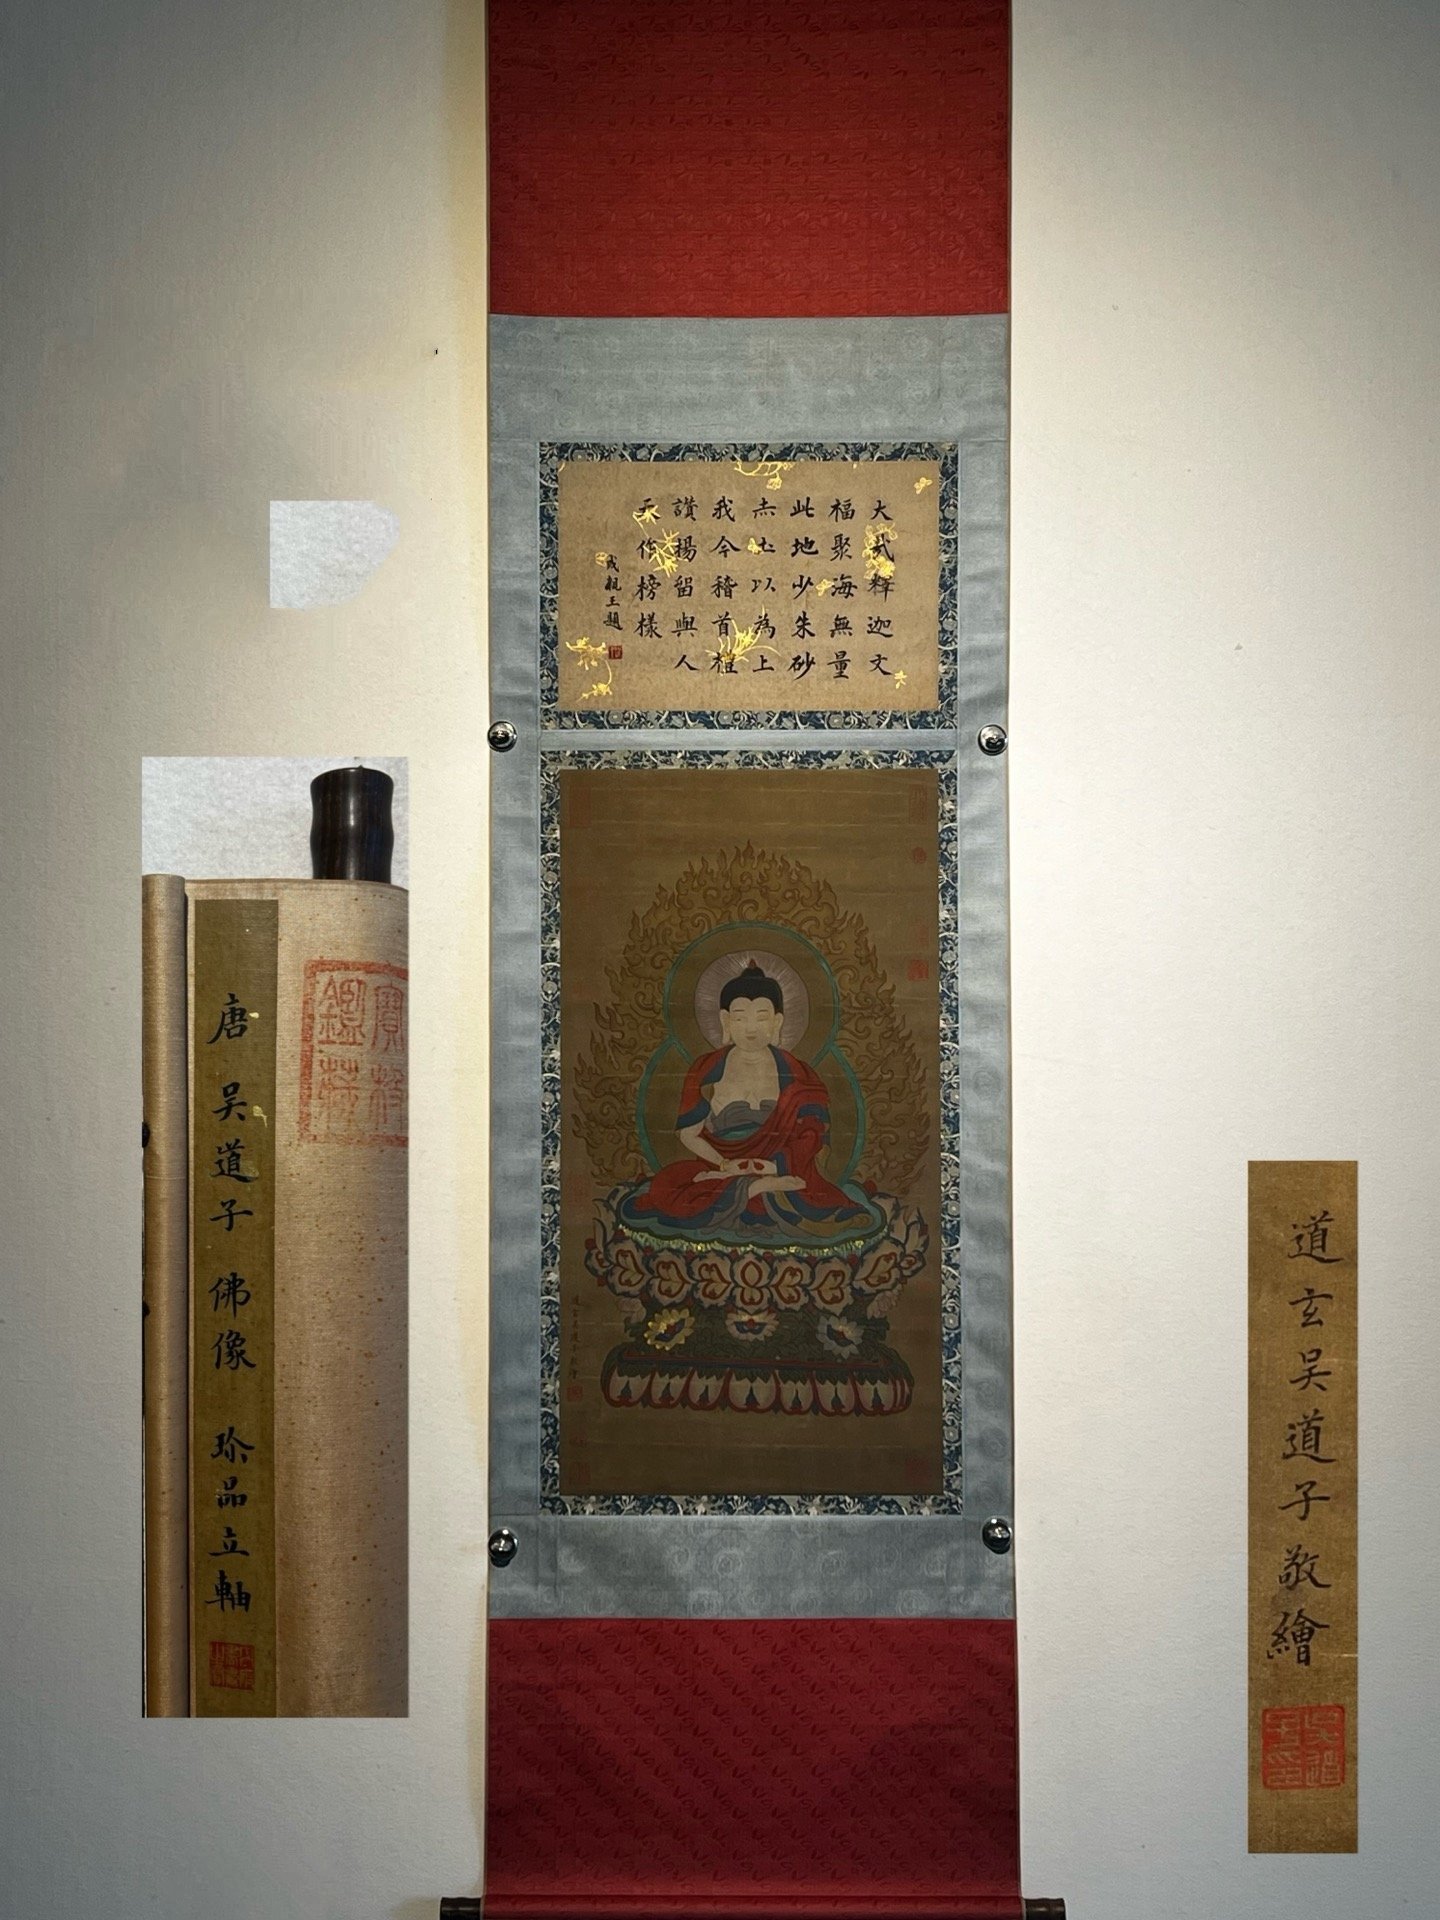 大哉釋迦文
福聚海無量
此地少朱砂
赤土以為上
我今稽首
讚揚留與人
天作榜樣
成親王題
唐 吳道子 佛像 珍品立軸
道玄吳道子敬繪
吳道子印